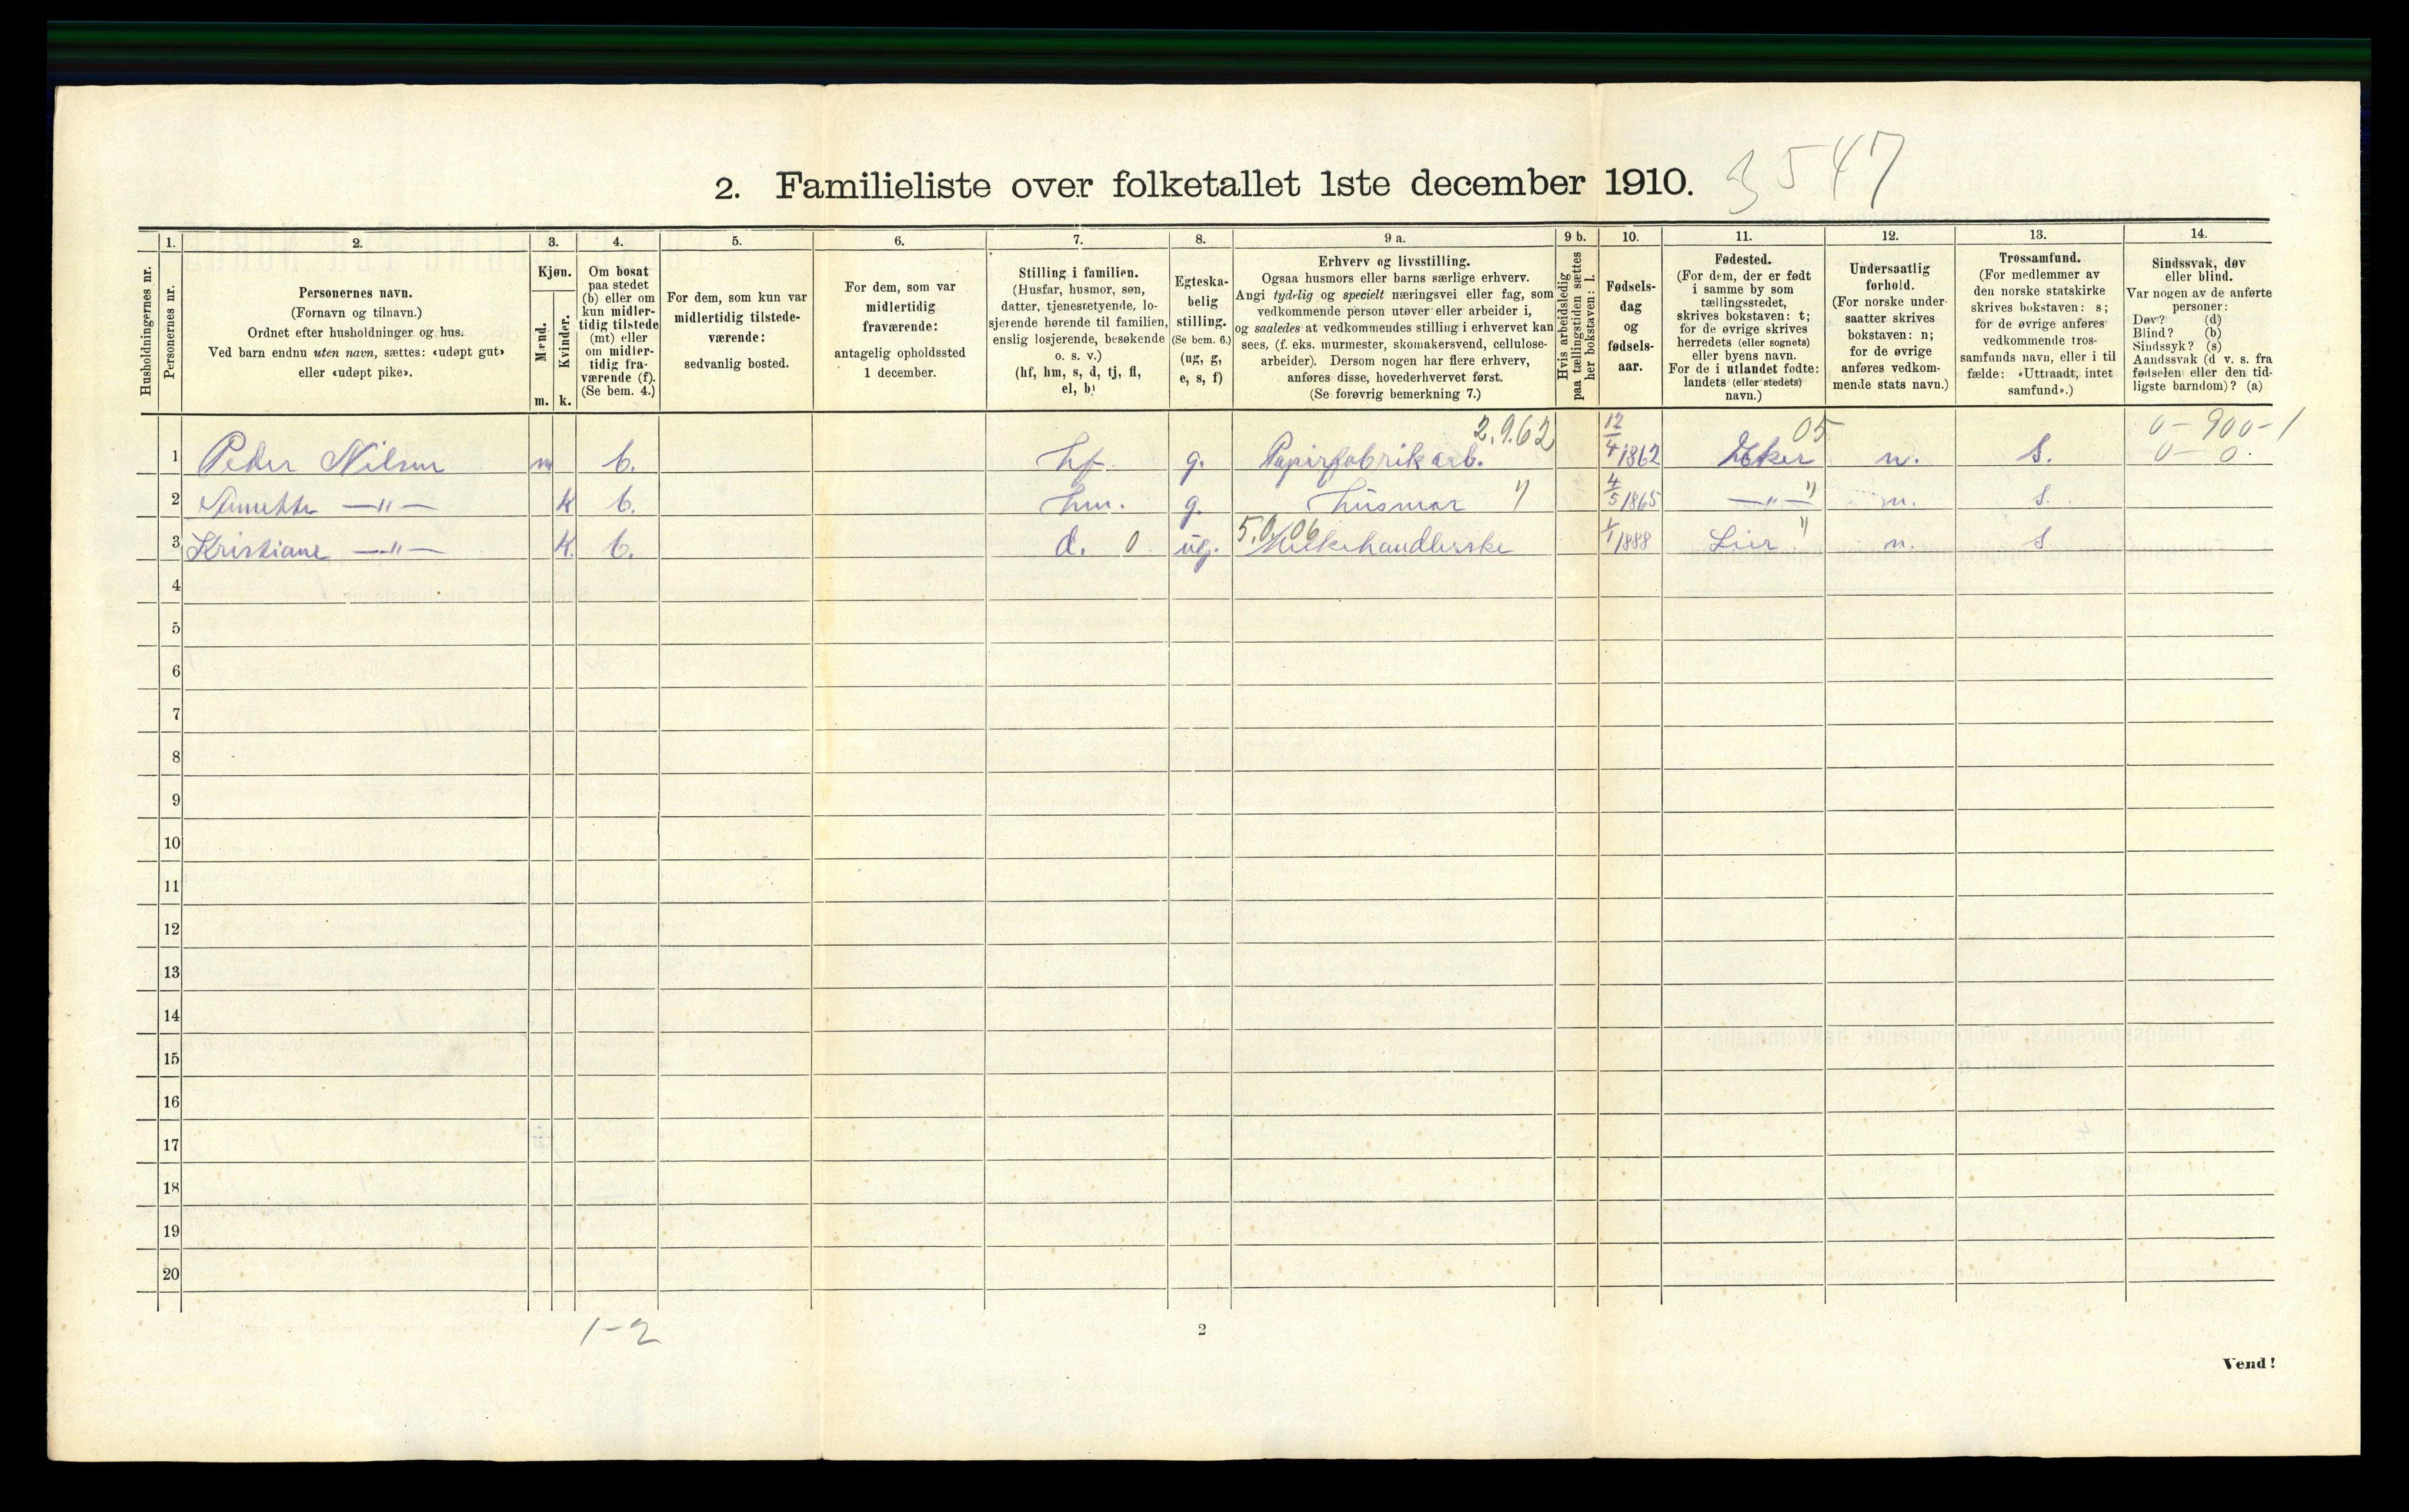 2. Familieliste over folketallet 1ste december 1910.
3547
1. 2. 3. 4. 5. 6. 7. 8. 9 a. 9 b. 10. 11. 12. 13. 14.
Husholdningernes nr.
Personernes nr.
Personernes navn.
(Fornavn og tilnavn.)
Ordnet efter husholdninger og hus.
Ved barn endnu uten navn, sættes: «udøpt gut»
eller «udøpt pike».
Kjøn.
Mænd.
Kvinder.
m. k.
Om bosat
paa stedet
(b) eller om
kun midler-
tidig tilstede
(mt) eller
om midler-
tidig fra-
værende (f).
(Se bem. 4.)
For dem, som kun var
midlertidig tilstede-
værende:
sedvanlig bosted.
For dem, som var
midlertidig
fraværende:
antagelig opholdssted
1 december.
Stilling i familien.
(Husfar, husmor, søn,
datter, tjenestetyende, lo-
sjerende hørende til familien,
enslig losjerende, besøkende
o. s. v.)
(hf, hm, s, d, tj, fl,
el, b)
Egteska-
belig
stilling.
(Se bem. 6.)
(ug, g,
e, s, f)
Erhverv og livsstilling.
Ogsaa husmors eller barns særlige erhverv.
Angi tydelig og specielt næringsvei eller fag, som
vedkommende person utøver eller arbeider i,
og saaledes at vedkommendes stilling i erhvervet kan
sees, (f. eks. murmester, skomakersvend, cellulose-
arbeider). Dersom nogen har flere erhverv,
anføres disse, hovederhvervet først.
(Se forøvrig bemerkning 7.)
Hvis arbeidsledig
paa tællingstiden sættes
her bokstaven: l.
Fødsels-
dag
og
fødsels-
aar.
Fødested.
(For dem, der er født
i samme by som
tællingsstedet,
skrives bokstaven: t;
for de øvrige skrives
herredets (eller sognets)
eller byens navn.
For de i utlandet fødte:
landets (eller stedets)
navn.)
Undersaatlig
forhold.
(For norske under-
saatter skrives
bokstaven: n;
for de øvrige
anføres vedkom-
mende stats navn.)
Trossamfund.
(For medlemmer av
den norske statskirke
skrives bokstaven: s;
for de øvrige anføres
vedkommende tros-
samfunds navn, eller i til
fælde: «Uttraadt, intet
samfund».)
Sindssvak, døv
eller blind.
Var nogen av de anførte
personer:
Døv? (d)
Blind? (b)
Sindssyk? (s)
Aandssvak (d v. s. fra
fødselen eller den tid-
ligste barndom)? (a)
2.9.62 05 0-900-1
1 Peder Nilsen m b. hf. g. Papirfabrikarb. 12/4 1862 Eker n. s. 0-0.
2 Annette —"— k b. hm. g. Husmor " 4/5 1865 —"— " n. s.
3 Kristiane —"— k. b. d. 0 ug. 5.0.06 Melkehandlerske 1/1 1888 Lier " n. s
4
5
6
7
8
9
10
11
12
13
14
15
16
17
18
19
20
1-2
2
Vend!